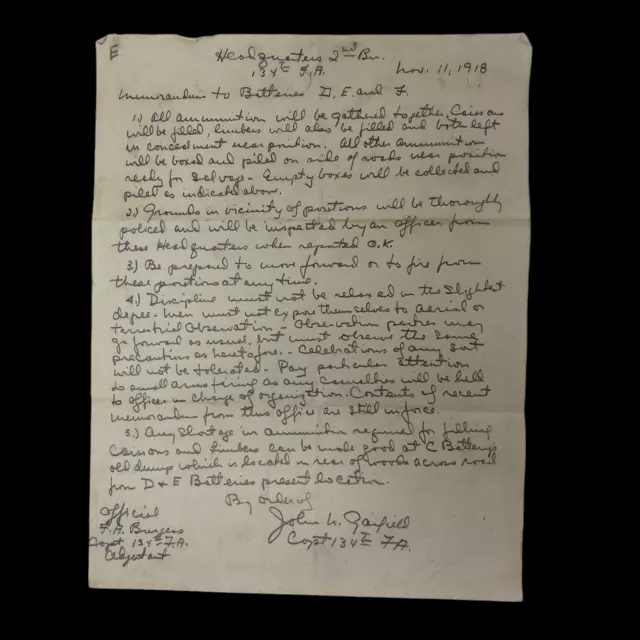 E
Headquarters 2nd Bn.
134th F.A.
Nov. 11, 1918
Memorandum to Batteries D, E and F.
1.) All ammunition will be gathered together, Caissons
will be filled, limbers will also be filled and both left
in concealment near position. All other ammunition
will be boxed and piled on side of roads near position
ready for Salvage - Empty boxes will be collected and
piled as indicated above.
2.) Grounds in vicinity of positions will be thoroughly
policed and will be inspected by an Officer from
these Headquarters when reported O.K.
3.) Be prepared to move forward or to fire from
these positions at any time.
4.) Discipline must not be relaxed in the Slightest
degree - Men must not expose themselves to aerial or
terrestrial Observation - Observation parties may
go forward as usual, but must observe the same
precautions as heretofore. - Celebrations of any sort
will not be tolerated - Pay particular attention
to small arms firing as any Casualties will be held
to officer in charge of organization. Contents of recent
memorandum from this office are still in force.
5.) Any Shortage in ammunition required for filling
Caissons and limbers can be made good at C Battery's
old dump which is located in rear of woods across road
from D & E Batteries present location.
By order of
John N. Garfield
Capt 134th F.A.
Official
F.A. Burgess
Capt 134th F.A.
Adjutant